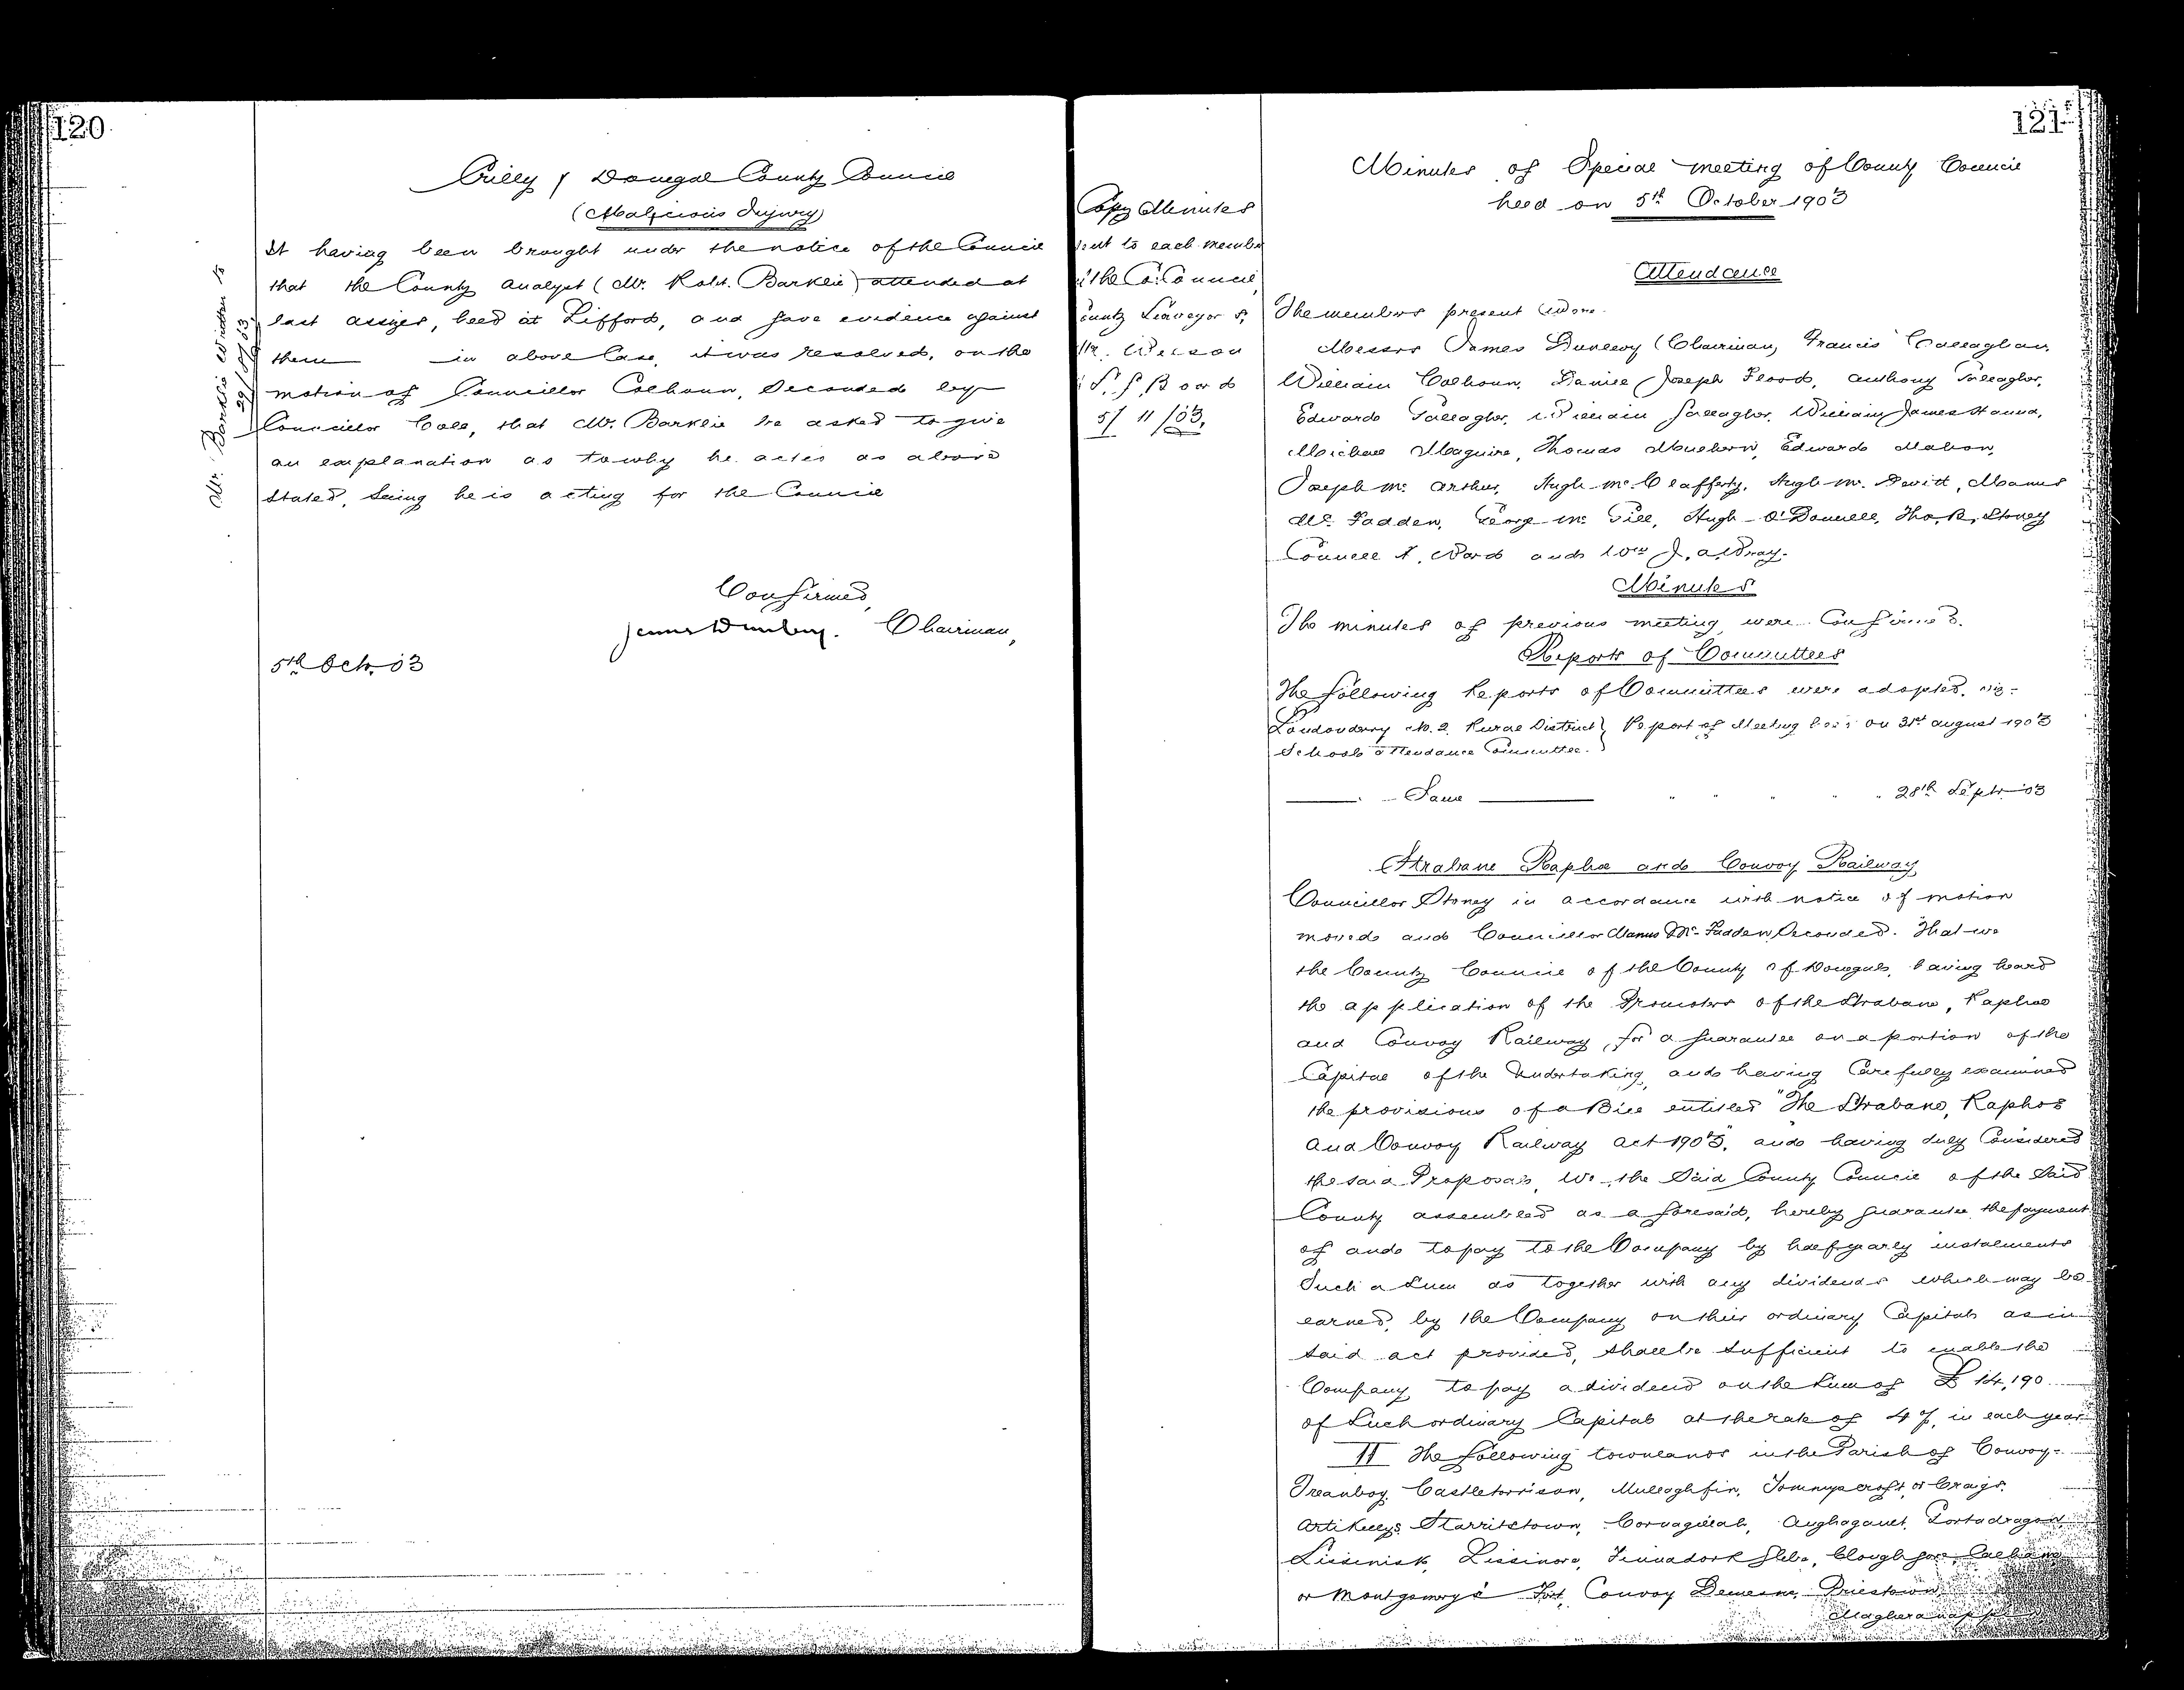 120
Crilly v Donegal County Council
(Malicious Injury)
It having been brought under the notice of the Council
that the County Analyst (Mr. Robt. Barklie) attended at
last assizes, held at Lifford, and gave evidence against
them in above Case, it was resolved, on the
motion of Councillor Colhoun, Seconded by
Councillor that Mr. Barklie be asked to give
an explanation as to why he acted as above
stated, seeing he is acting for the Council
Mr. Barklie written to
29/8/03
Confirmed,
James Dunlevy. Chairman,
5th Oct. 03
Copy Minutes
sent to each member
of the Co. Council,
County Surveyor &
Mr. Wilson
L. G. Board
5/11/03.
121
Minutes of Special meeting of County Council
held on 5th October 1903
Attendance
The members present were
Messrs James Dunlevy (Chairman) Francis Callaghan,
William Colhoun, Daniel Joseph Flood, Anthony Gallagher,
Edward Gallagher, William Gallagher, William James Hanna,
Michael Maguire, Thomas Edward Mahon,
Joseph Mc Arthur, Hugh Mc Clafferty, Hugh Mc Devitt, Manus
Mc Fadden, George Mc Gill, Hugh O'Donnell, Tho. B. Stoney
Connell J. Ward and Wm J. A. Wray.
Minutes
The minutes of previous meeting were Confirmed.
Reports of Committees
The following Reports of Committees were adopted, viz-
Londonderry No. 2. Rural District } Report of Meeting held on 31st August 1903
School Attendance Committee. }
Same " " " " " 28th Septr 03
Strabane Raphoe and Convoy Railway
Councillor Stoney in accordance with notice of motion
moved and Councillor Manus Mc Fadden Seconded. That we
the County Council of the County of Donegal, having heard
the application of the Promoters of the Strabane, Raphoe
and Convoy Railway, for a guarantee on a portion of the
Capital of the Undertaking, and having Carefully examined
the provisions of a Bill entitled "The Strabane, Raphoe
and Convoy Railway Act 1903", and having duly Considered
the said Proposals, We, the Said County Council of the Said
County assembled as aforesaid, hereby guarantee the payment
of and to pay to the Company by half yearly instalments
Such a Sum as together with any dividends which may be
earned, by the Company on their ordinary Capital as in
said act provided, shall be sufficient to enable the
Company to pay a dividend on the Sum of £14,190
of Such ordinary Capital at the rate of 4% in each year.
II The following townlands in the Parish of Convoy-
Treanboy, Castletorrison, Mullaghfin, Tommyscroft or Craigs,
Artikellys, Starritstown, Corvagillah, Aughagault,
Lissinisk, Lissinore, Findadork Glebe, Cloughfin,
or Montgomery's Fort, Convoy Demesne, Priestown,